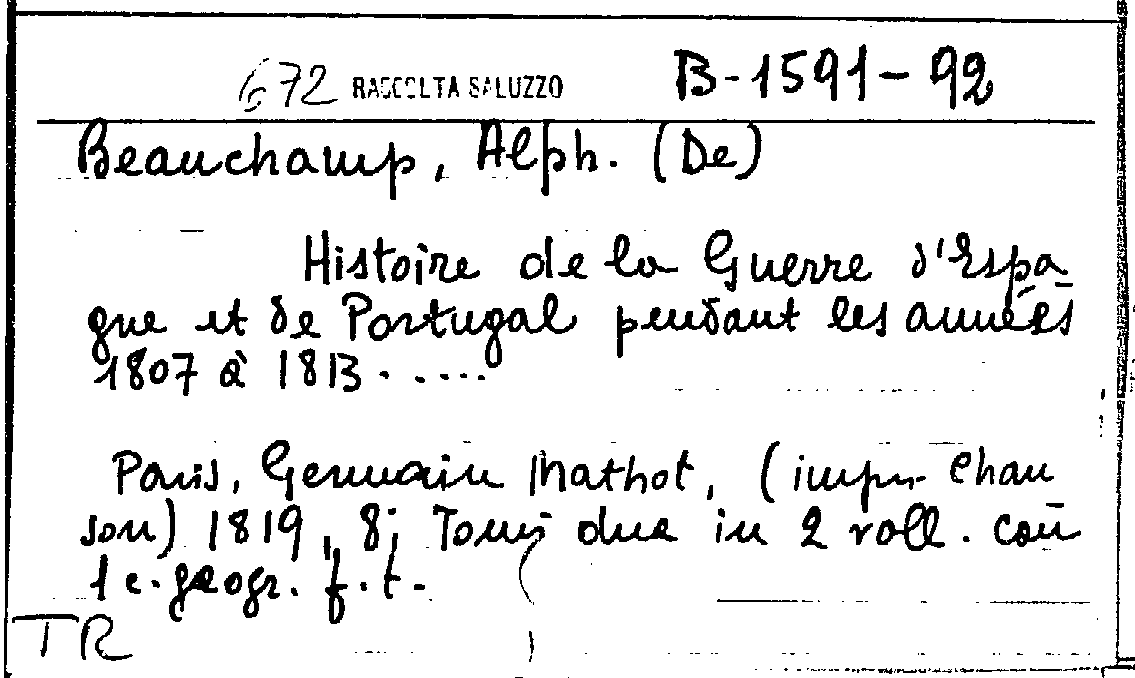 672 RACCOLTA SALUZZO B-1591-92
Beauchamp, Alph. (De)
Histoire de la Guerre d'Espa
gne et de Portugal pendant les années
1807 à 1813.....
Paris, Germain Mathot, (impr. Chan
son) 1819, 8; Tomi due in 2 voll. con
1 c. geogr. f.t.
TR